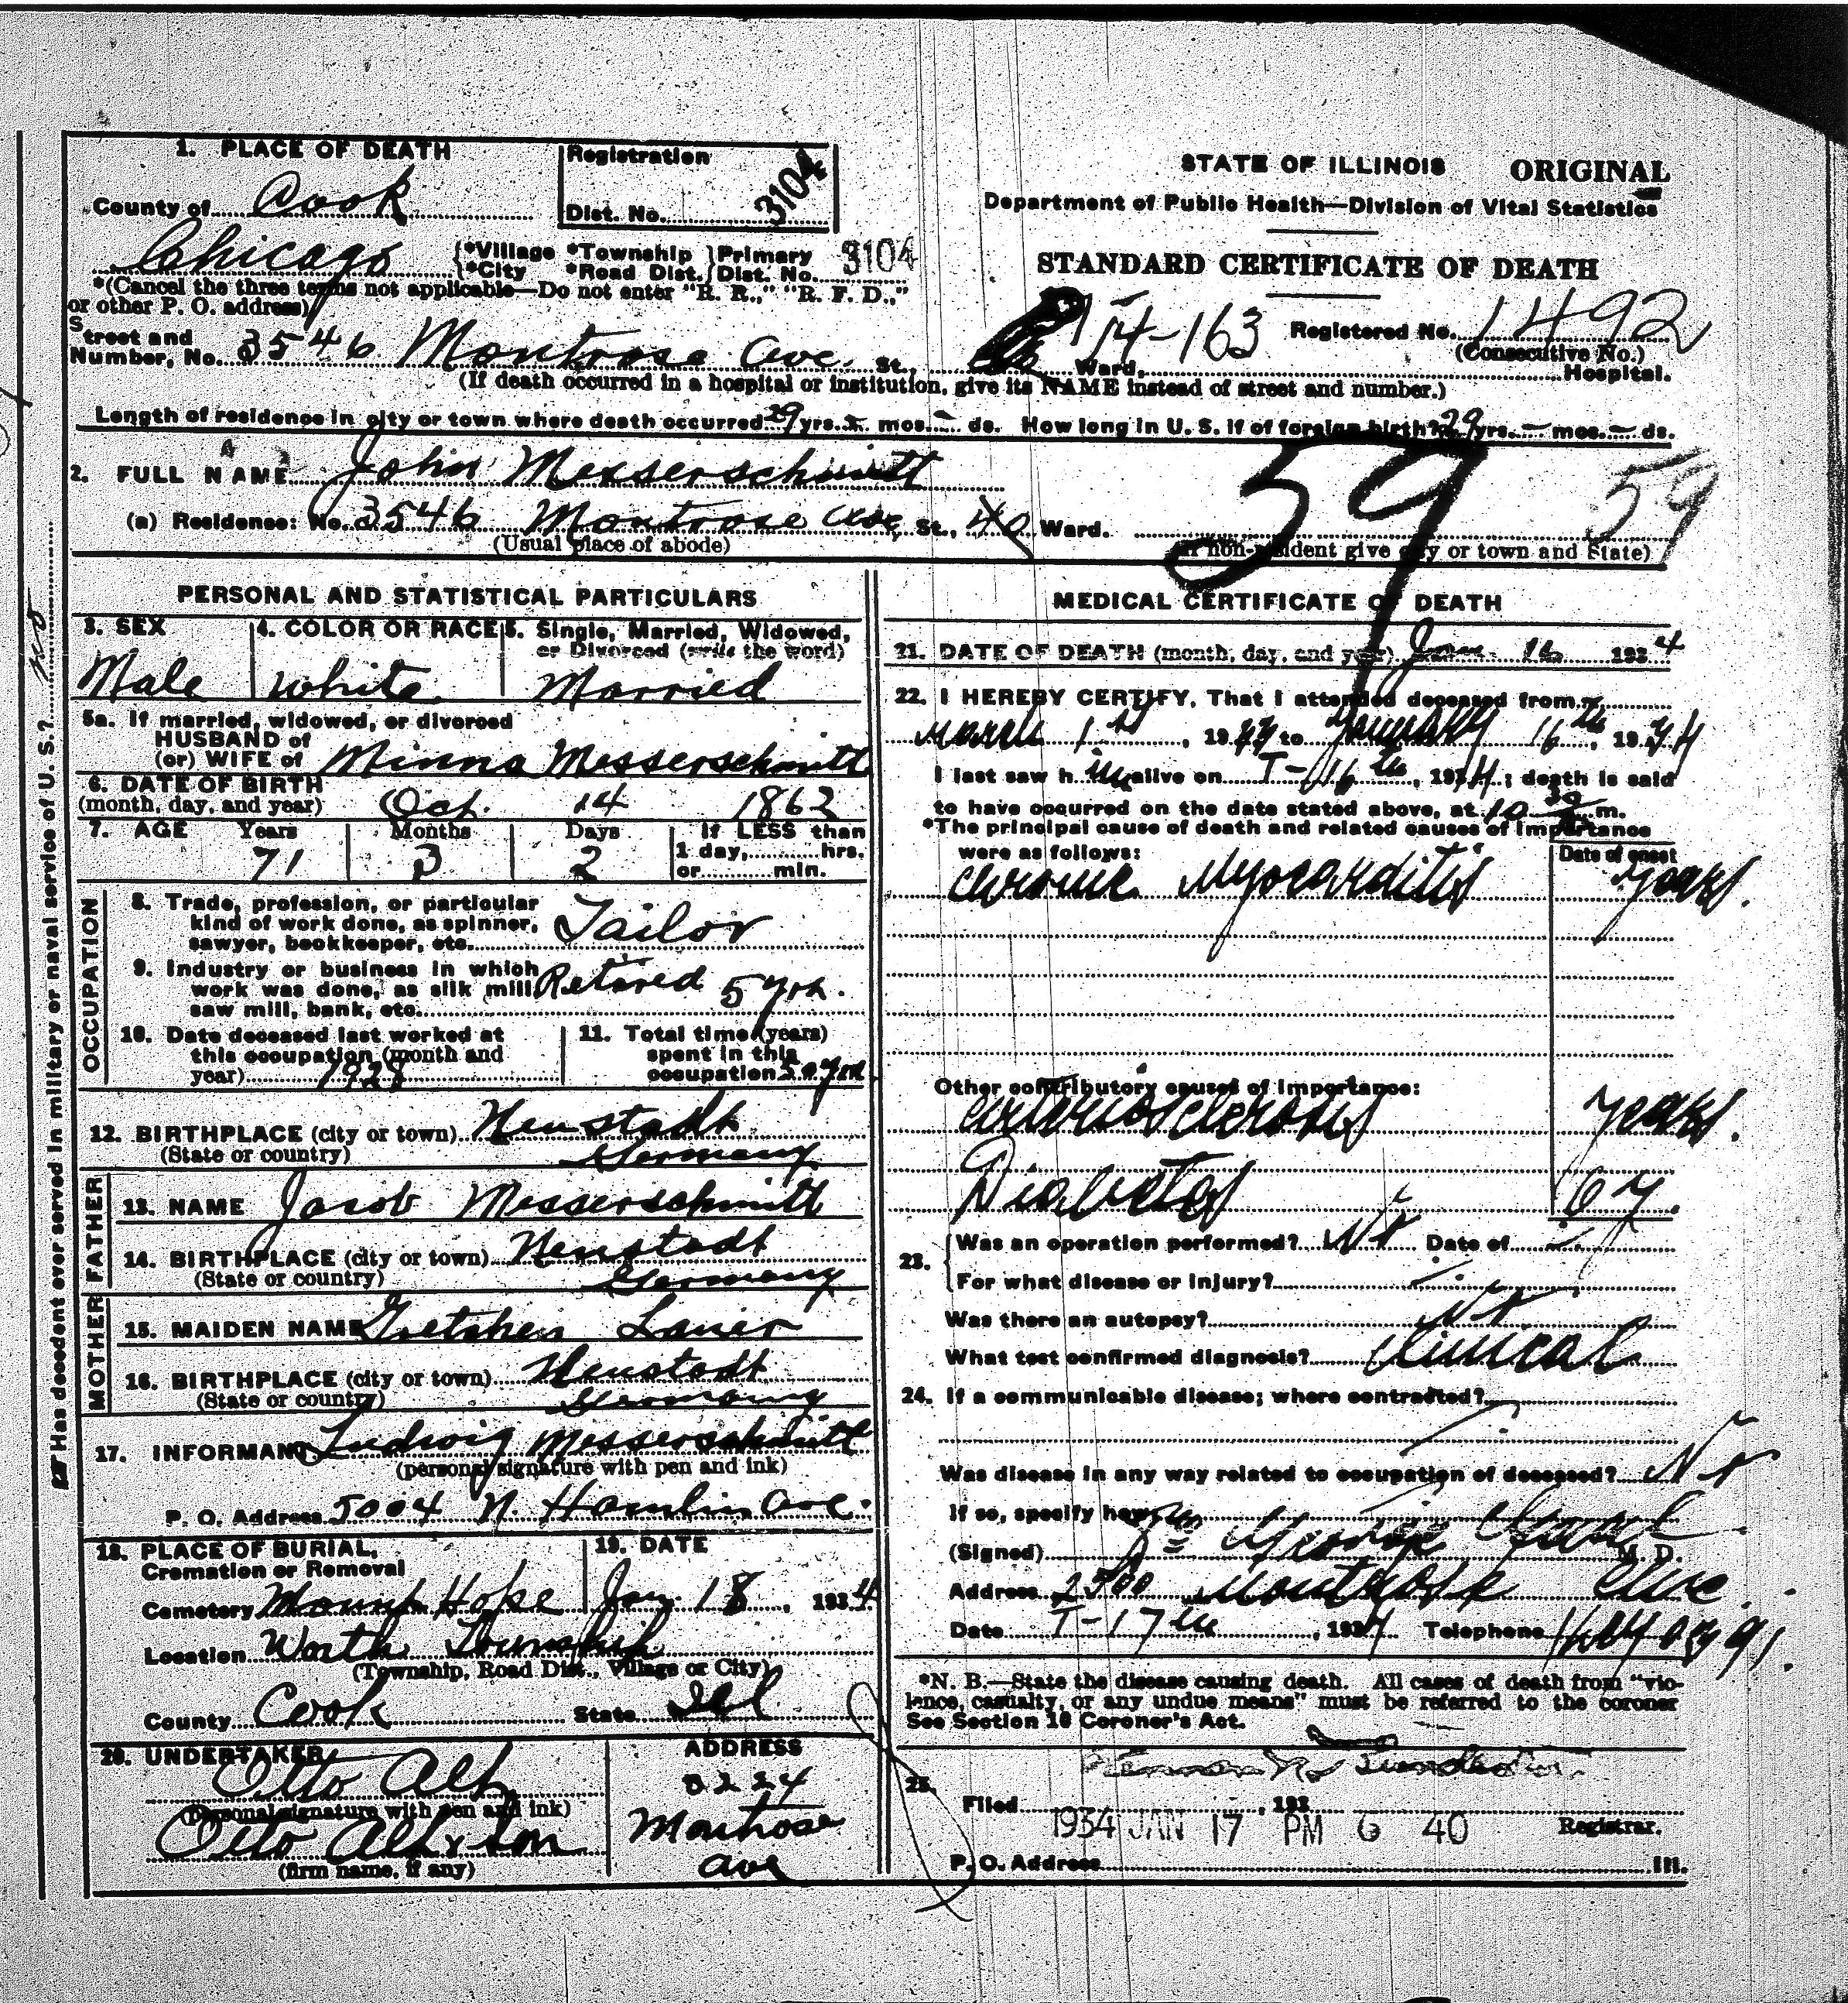 1. PLACE OF DEATH
County of Cook
Registration
Dist. No. 3104
Chicago {*Village *Township } Primary
*City *Road Dist. Dist. No. 3104
*(Cancel the three terms not applicable—Do not enter "R. R.," "R. F. D.,"
or other P. O. address)
Street and
Number, No. 3546 Montrose Ave. St., Ward, Hospital.
(If death occurred in a hospital or institution, give its NAME instead of street and number.)
STATE OF ILLINOIS ORIGINAL
Department of Public Health—Division of Vital Statistics
STANDARD CERTIFICATE OF DEATH
174-163 Registered No. 1492
(Consecutive No.)
Length of residence in city or town where death occurred 29 yrs. - mos. - ds. How long in U. S. if of foreign birth? 29 yrs. - mos. - ds.
2. FULL NAME John Messerschmitt
59 59
(a) Residence: No. 3546 Montrose Ave St., 40 Ward.
(Usual place of abode) (If non-resident give city or town and State)
Has decedent ever served in military or naval service of U. S.? no
PERSONAL AND STATISTICAL PARTICULARS
3. SEX 4. COLOR OR RACE 5. Single, Married, Widowed,
or Divorced (write the word)
Male White Married
5a. If married, widowed, or divorced
HUSBAND of
(or) WIFE of Minna Messerschmitt
6. DATE OF BIRTH
(month, day, and year) Oct. 14 1862
7. AGE Years Months Days If LESS than
1 day, hrs.
or min.
71 3 2
OCCUPATION
8. Trade, profession, or particular
kind of work done, as spinner,
sawyer, bookkeeper, etc. Tailor
9. Industry or business in which
work was done, as silk mill,
saw mill, bank, etc. Retired 5 yrs.
10. Date deceased last worked at
this occupation (month and
year) 1928
11. Total time (years)
spent in this
occupation 50 yrs
12. BIRTHPLACE (city or town) Neustadt
(State or country) Germany
FATHER
13. NAME Jacob Messerschmitt
14. BIRTHPLACE (city or town) Neustadt
(State or country) Germany
MOTHER
15. MAIDEN NAME Gretchen Lauer
16. BIRTHPLACE (city or town) Neustadt
(State or country) Germany
17. INFORMANT Ludwig Messerschmitt
(personal signature with pen and ink)
P. O. Address 5004 N. Hamlin Ave.
18. PLACE OF BURIAL, 19. DATE
Cremation or Removal
Cemetery Mount Hope Jan 18, 1934
Location Worth Township
(Township, Road Dist., Village or City)
County Cook State Ill
20. UNDERTAKER ADDRESS
Otto Alt 3224
(Personal signature with pen and ink)
Otto Alt & Son Montrose
(firm name, if any) Ave
MEDICAL CERTIFICATE OF DEATH
21. DATE OF DEATH (month, day, and year) Jan 16 1934
22. I HEREBY CERTIFY, That I attended deceased from
March 1st, 19 to January 16th, 1934
I last saw him alive on I-16th, 1934; death is said
to have occurred on the date stated above, at 10 m.
*The principal cause of death and related causes of importance
were as follows: Date of onset
Chronic Myocarditis years.
Other contributory causes of importance:
arteriosclerosis years.
Diabetes
23. {Was an operation performed? No Date of
For what disease or injury?
Was there an autopsy? No
What test confirmed diagnosis? Clinical
24. If a communicable disease; where contracted?
Was disease in any way related to occupation of deceased? No
If so, specify how
(Signed) George M. D.
Address 2500 Montrose Ave.
Date I-17th, 1934 Telephone
*N. B.—State the disease causing death. All cases of death from "vio-
lence, casualty, or any undue means" must be referred to the coroner
See Section 10 Coroner's Act.
25.
Filed , 193
1934 JAN 17 PM 6 40 Registrar.
P. O. Address Ill.